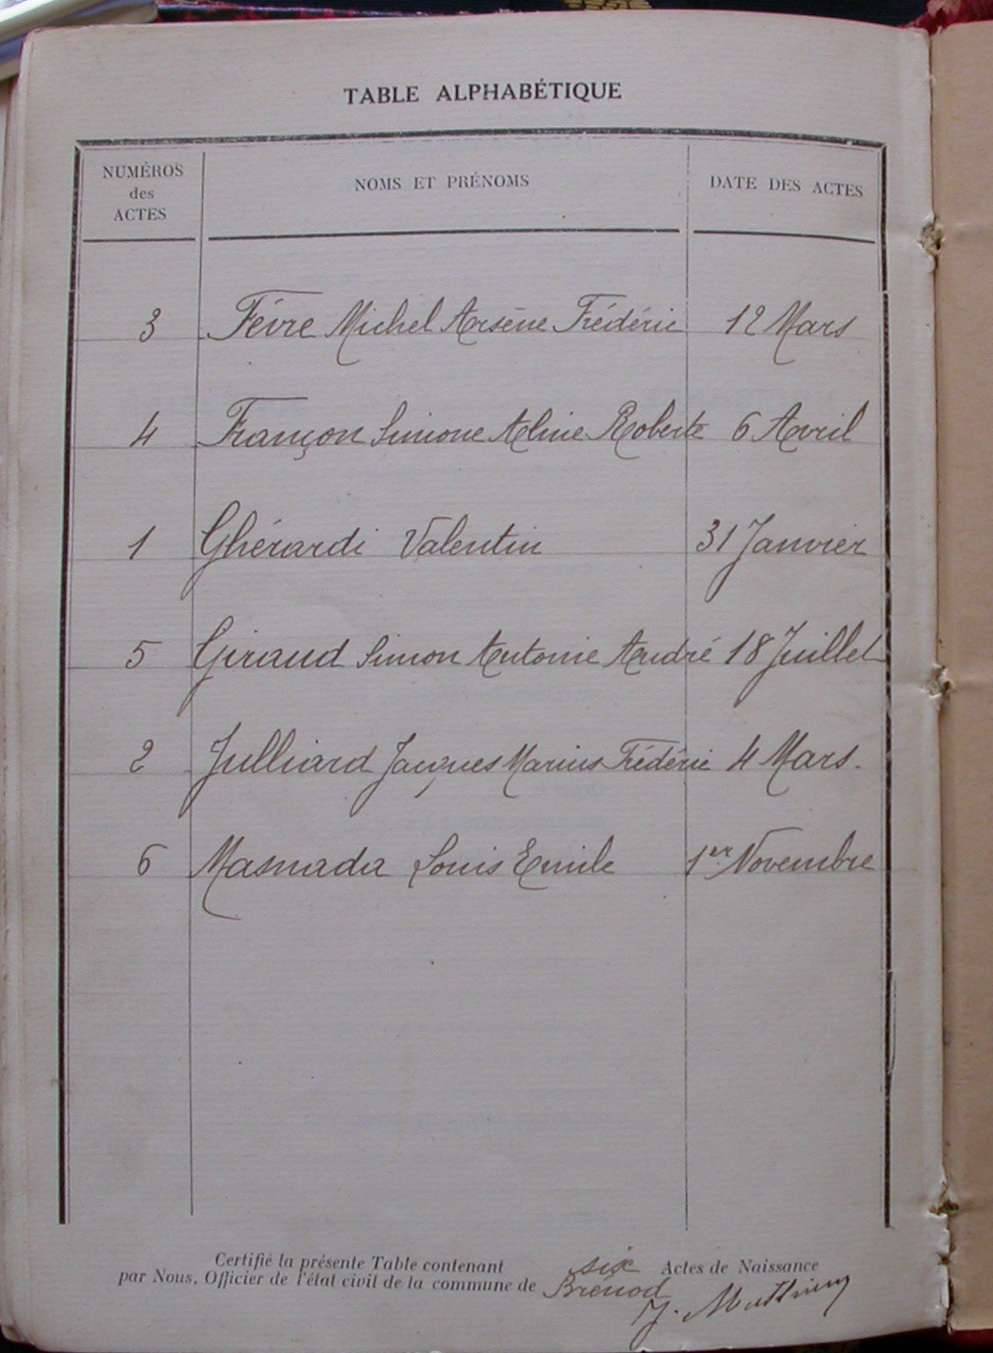 TABLE ALPHABÉTIQUE
NUMÉROS des ACTES NOMS ET PRÉNOMS DATE DES ACTES
3 Févre Michel Arsène Frédéric 12 Mars
4 Françon Simone Aline Roberte 6 Avril
1 Ghérardi Valentin 31 Janvier
5 Giraud Simon Antonie André 18 Juillet
2 Julliard Jacques Marius Frédéric 4 Mars.
6 Masnada Louis Emile 1er Novembre
Certifié la présente Table contenant six Actes de Naissance
par Nous, Officier de l'état civil de la commune de Brénod
J.